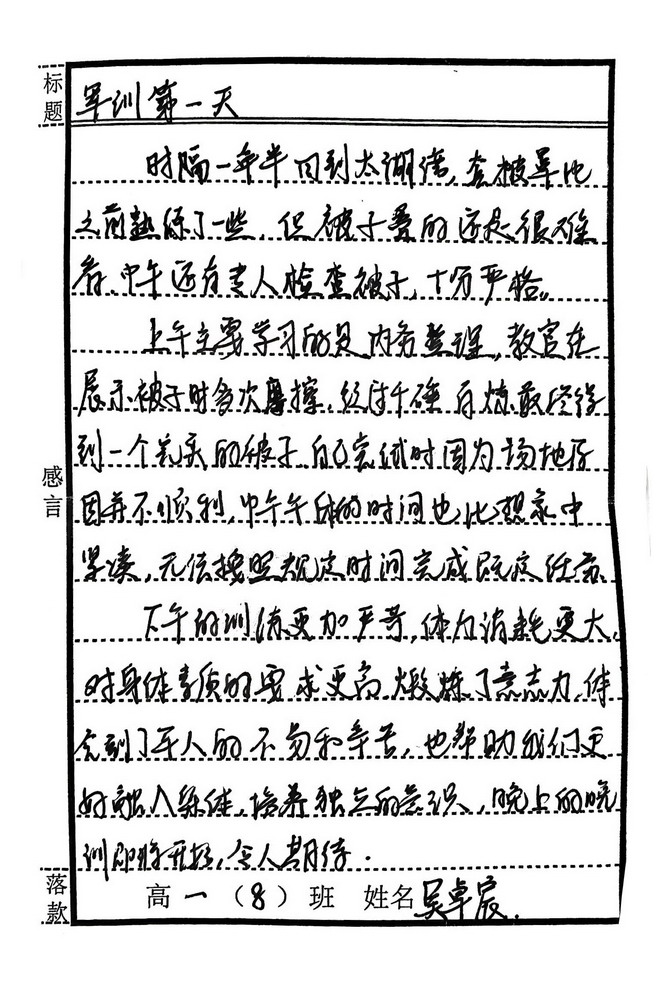 标题
军训第一天
时隔一年半回到太湖营,叠被单比
之前熟练了一些,但被子叠的还是很难
看,中午还有专人检查被子,十分严格。
上午主要学习的是内务整理,教官在
展示被子时多次摩擦,经过千锤百炼最终得
到一个完美的被子,自己尝试时因为场地原
因并不顺利,中午午休的时间也比想象中
紧凑,无法按照规定时间完成既定任务
下午的训练更加严苛,体力消耗更大,
对身体素质的要求更高,煅炼了意志力,体
会到了军人的不易和辛苦,也帮助我们更
好融入集体,培养独立的意识,晚上的晚
训即将开始,令人期待.
感言
落款
高一(8)班 姓名 吴卓宸.